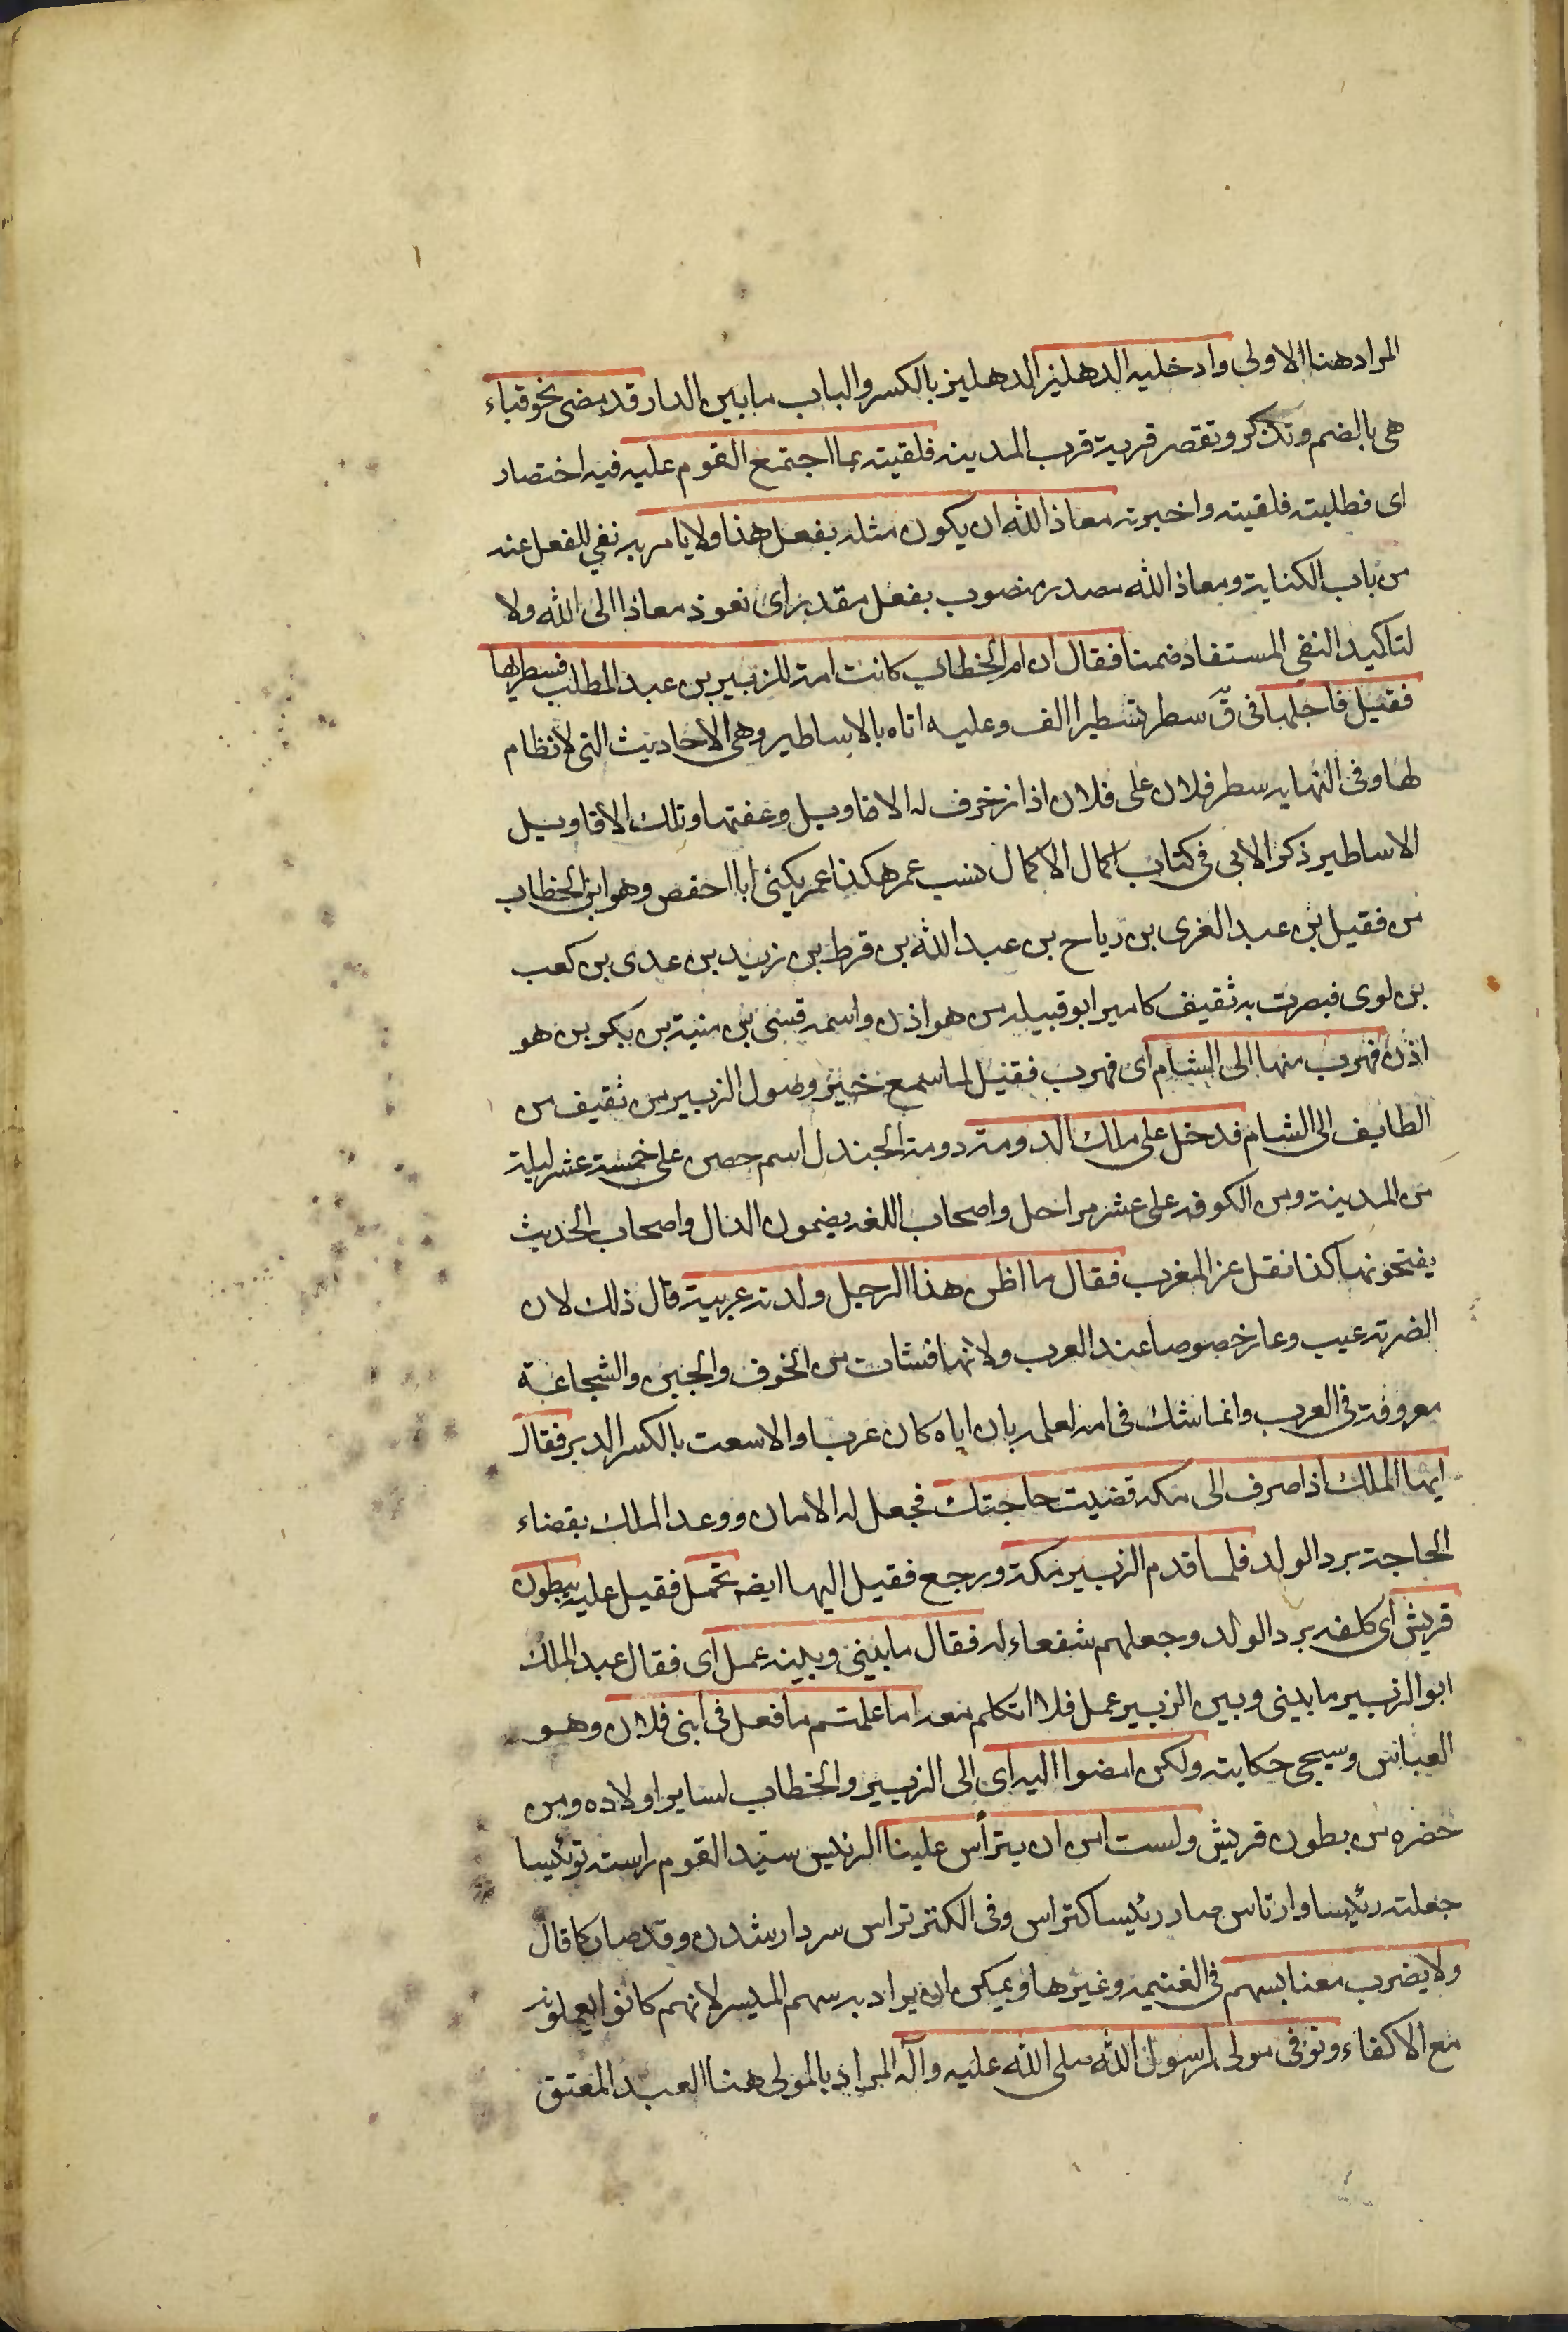 المراد هنا الاولى وادخليه الدهليز الدهليز بالكسر والباب مابين الدار قد مضى نحو قباء
هى بالضم وتذكر وتقصر قرية قرب المدينه فلقيته بما اجتمع القوم عليه فيه اختصار
اى فطلبته فلقيته واخبرته معاذ الله ان يكون مثله يفعل هذا ولا يامر به نفي للفعل عنه
من باب الكناية ومعاذ الله مصدر منصوب بفعل مقدر اى نعوذ معاذا الى الله ولا
لتاكيد النفي المستفاد ضمنا فقال ان ام الخطاب كانت امة للزبير بن عبد المطلب فسطر بها
فقيل فاحبلها فى ق سطر تسطيرا الف وعليه اتاه بالاساطير وهى الاحاديث التى لا نظام
لها وفى النهايه سطر فلان على فلان اذا زخرف له الاقاويل ونمقتها وتلك الاقاويل
الاساطير ذكر الابى فى كتاب اكمال الاكمال نسب عمر هكذا عمر يكنى ابا احفص وهو ابن الخطاب
من فقيل بن عبد الغرى بن رياح بن عبد الله بن قرط بن زيد بن عدى بن كعب
بن لوى فبصرت به ثقيف كامير ابو قبيله من هواذن واسمه قسى بن منية بن بكو بن هو
اذن فهرب منها الى الشام اى فهرب فقيل لما سمع خبر وصول الزبير من ثقيف من
الطايف الى الشام فدخل على ملك الدومة دومة الجندل اسم حصن على خمسة عشر ليلة
من المدينة ومن الكوفه على عشر مراحل واصحاب اللغه يضمون الدال واصحاب الحديث
يفتحونها كذا نقل عن المغرب فقال ما اظن هذا الرجل ولدته عربية قال ذلك لان
الضرته عيب وعار خصوصا عند العرب ولانها نشات من الخوف والجبن والشجاعة
معروفة فى العرب وانما شك فى امه لعلمه بان اباه كان عربيا والاست بالكسر الدبر فقال
ايها الملك اذا صرف الى مكه قضيت حاجتك فجعل له الامان ووعد الملك بقضاء
الحاجة برد الولد فلما قدم الزبير مكة ورجع فقيل اليها ايضه تحمل فقيل عليه ببطون
قريش اى كلفه برد الولد وجعلهم شفعاء له فقال مابينى وبينه عمل اى فقال عبد الملك
ابو الزبير مابينى وبين الزبير عمل فلا اتكلم معه اما علمتم ما فعل فى ابنى فلان وهو
العباس وسيجى حكايته ولكن امضوا اليه اى الى الزبير والخطاب لساير اولاده ومن
حضره من بطون قريش ولست امن ان يتراس علينا الرئيس سيد القوم راسته توئيسا
جعلته رئيسا وارتاس صار رئيسا كتراس وفى الكنز تراس سردار شدن وقد صار كما قال
ولا يضرب معنا بسهم فى الغنيمه وغيرها ويمكن ان يراد به سهم الميسر لانهم كانوا يعملونه
مع الاكفاء وتوفى مولى لرسول الله صلى الله عليه وآله المراد بالمولى هنا العبد المعتق